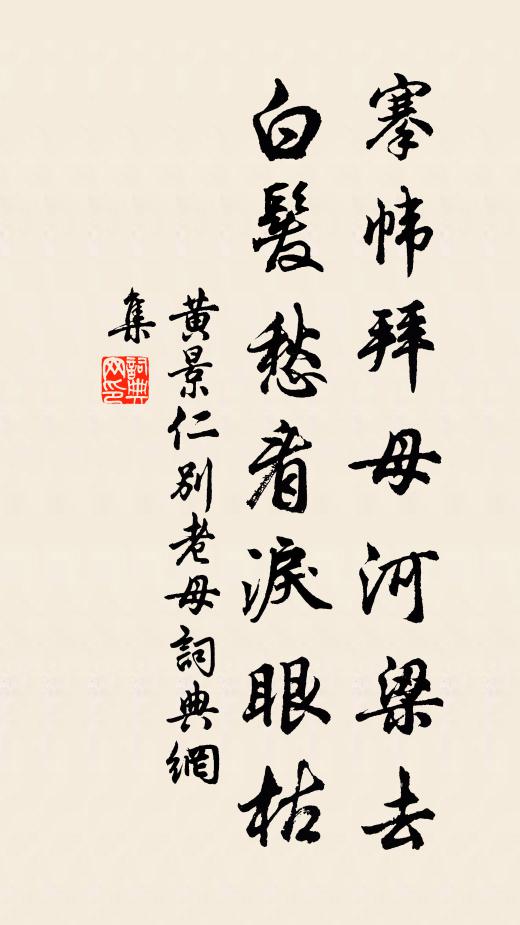 搴帏拜母河梁去
白髮愁看淚眼枯
黃景仁别老母詞典網
集
詞典網印